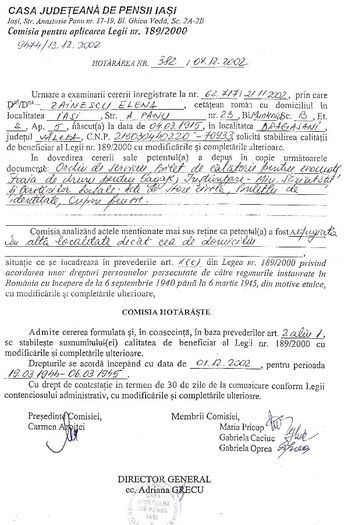 CASA JUDEŢEANĂ DE PENSII IAŞI
Iaşi, Str. Anastasie Panu nr. 17-19, Bl. Ghica Vodă, Sc. 2A-2B
Comisia pentru aplicarea Legii nr. 189/2000
9474/13.12.2002
HOTĂRÂREA NR. 382 / 04.12.2002
Urmare a examinării cererii înregistrate la nr. 02.717/21.11.2002, prin care
ZAINESCU ELENA, cetăţean român cu domiciliul în
localitatea IASI, Str. A. PANU nr. 23, Bl., Sc. B, Et.
2, Ap. 5, născut(a) la data de 04.03.1915, în localitatea DRAGASANI,
judeţul VALCEA, C.N.P. solicită stabilirea calităţii
de beneficiar al Legii nr. 189/2000 cu modificările şi completările ulterioare.
În dovedirea cererii sale petentul(a) a depus în copie următoarele
documente: Ordin de serviciu, bilet de calatorie pentru evacuati
Foaia de drum pentru bagaje,
stare civila, Buletin de
identitate, Cupon pensie.
Comisia analizând actele menţionate mai sus reţine că petentul(a) a fost refugiata
in alta localitate decat cea de domiciliu
situaţie ce se încadrează în prevederile art. 1(c) din Legea nr. 189/2000 privind
acordarea unor drepturi persoanelor persecutate de către regimurile instaurate în
România cu începere de la 6 septembrie 1940 până la 6 martie 1945, din motive etnice,
cu modificările şi completările ulterioare.
COMISIA HOTĂRĂŞTE
Admite cererea formulată şi, în consecinţă, în baza prevederilor art. 2 alin 1,
se stabileşte susnumitului(ei) calitatea de beneficiar al Legii nr. 189/2000 cu
modificările şi completările ulterioare.
Drepturile se acordă începând cu data de 01.12.2002, pentru perioada
19.03.1944-06.03.1945.
Cu drept de contestaţie în termen de 30 de zile de la comunicare conform Legii
contenciosului administrativ, cu modificările şi completările ulterioare.
Preşedinte Comisiei,
Carmen
Membrii Comisiei,
Maria Pricop
Gabriela Caciuc
Gabriela Oprea
DIRECTOR GENERAL
ec. Adriana GRECU
CASA
JUDEŢEANĂ
DE PENSII
IAŞI